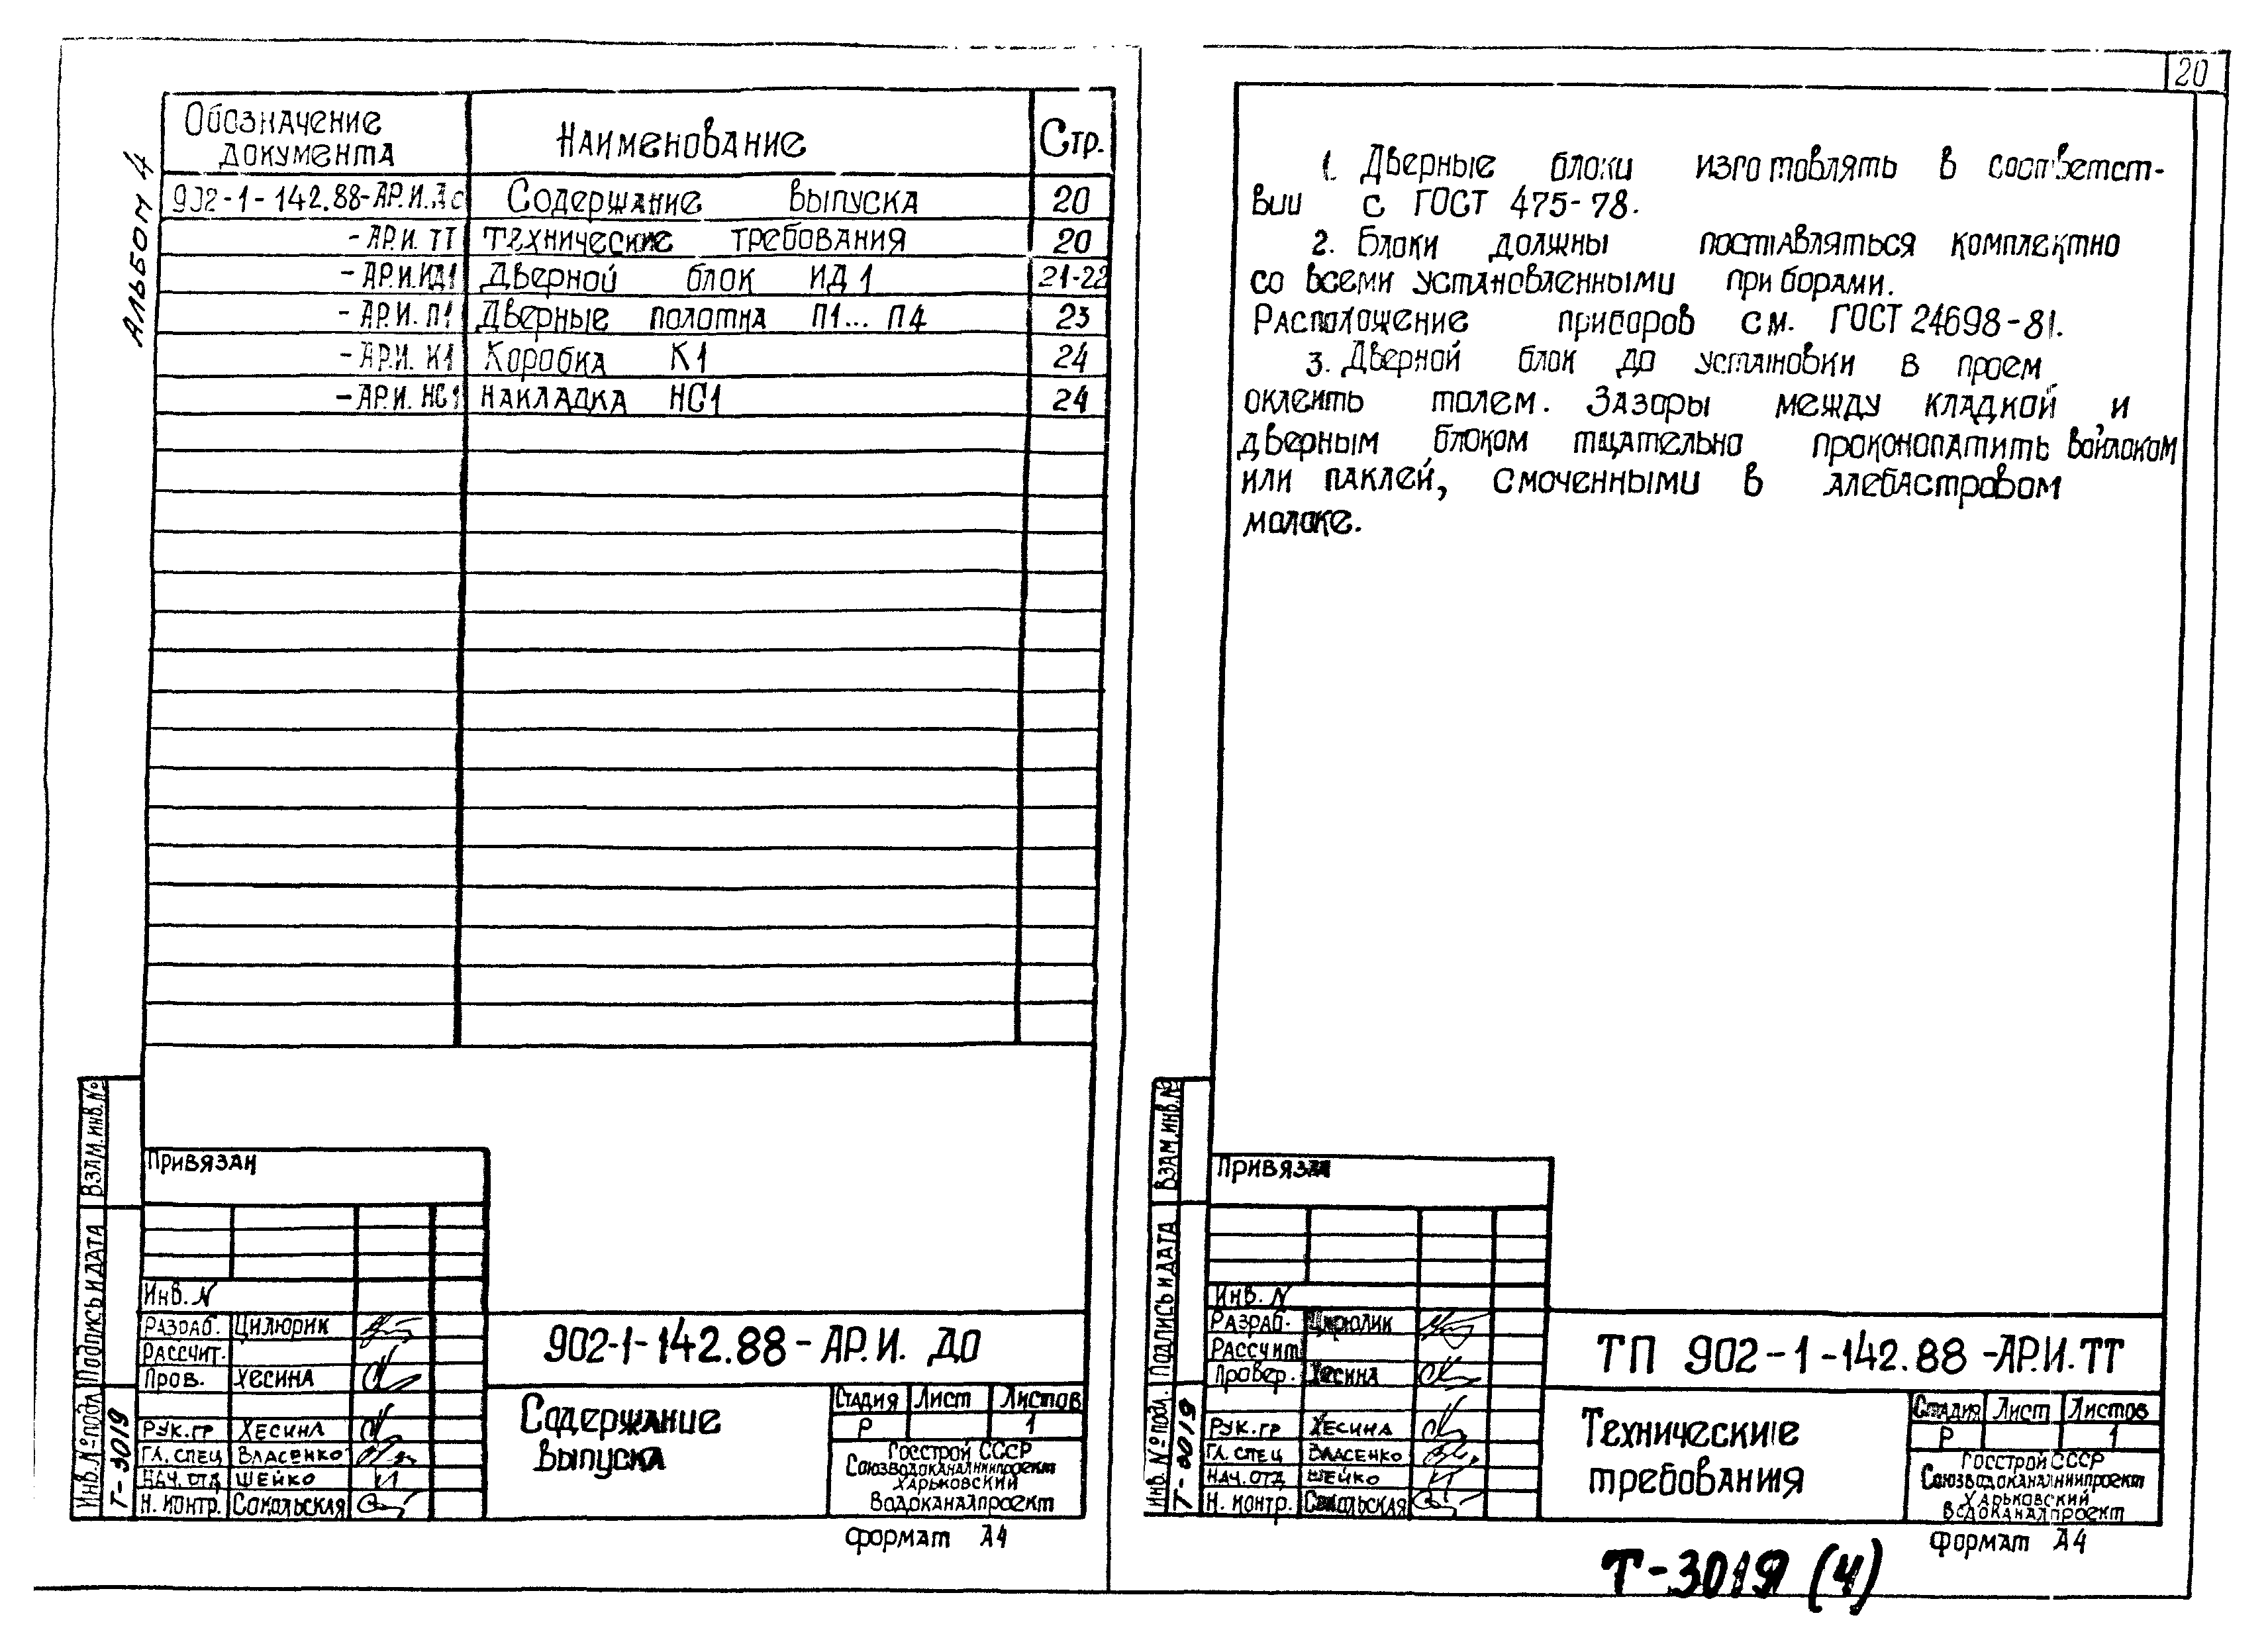 Альбом 4
Обозначение документа Наименование Стр.
902-1-142.88-АР.И. Содержание выпуска 20
-АР.И. ТТ Технические требования 20
-АР.И.ИД1 Дверной блок ИД1 21-22
-АР.И. П1 Дверные полотна П1... П4 23
-АР.И. К1 Коробка К1 24
-АР.И. НС1 Накладка НС1 24
Взам.инв.№
Подпись и дата
Инв.№подл
Т-3019
Привязан
Инв. N
Разраб. Цилюрик
Рассчит.
Пров. Хесина
Рук.гр Хесина
Гл. спец Власенко
Нач. отд Шейко
Н. контр. Сокольская
902-1-142.88-АР.И. ДО
Содержание
выпуска
Стадия Лист Листов
Р 1
Госстрой СССР
Союзводоканалниипроект
Харьковский
Водоканалпроект
формат А4
20
1. Дверные блоки изготовлять в соответст-
вии с ГОСТ 475-78.
2. Блоки должны поставляться комплектно
со всеми установленными приборами.
Расположение приборов см. ГОСТ 24698-81.
3. Дверной блок до установки в проем
оклеить толем. Зазоры между кладкой и
дверным блоком тщательно проконопатить войлоком
или паклей, смоченными в алебастровом
молоке.
Взам.инв.№
Подпись и дата
Инв. №подл.
Т-3019
Привязан
Инв. N
Разраб. Цирюлик
Рассчит
Провер. Хесина
Рук.гр Хесина
Гл. спец Власенко
Нач. отд Шейко
Н. контр. Сокольская
ТП 902-1-142.88-АР.И.ТТ
Технические
требования
Стадия Лист Листов
Р 1
Госстрой СССР
Союзводоканалниипроект
Харьковский
Водоканалпроект
формат А4
Т-3019 (4)